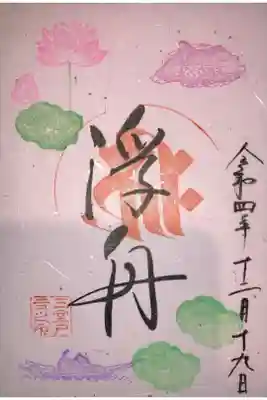 令和四年 十二月十九日
浮舟
三室戸